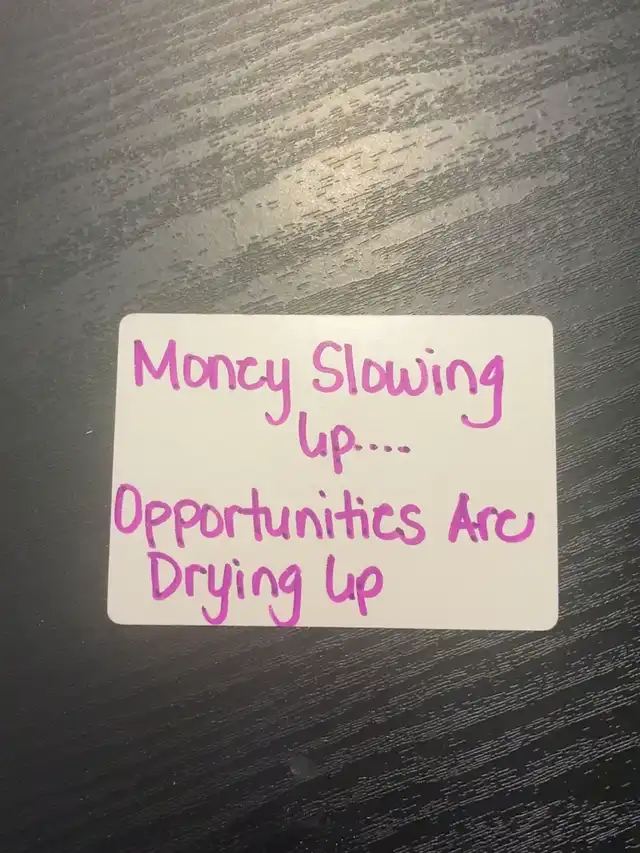 Money Slowing
Up....
Opportunities Are
Drying Up